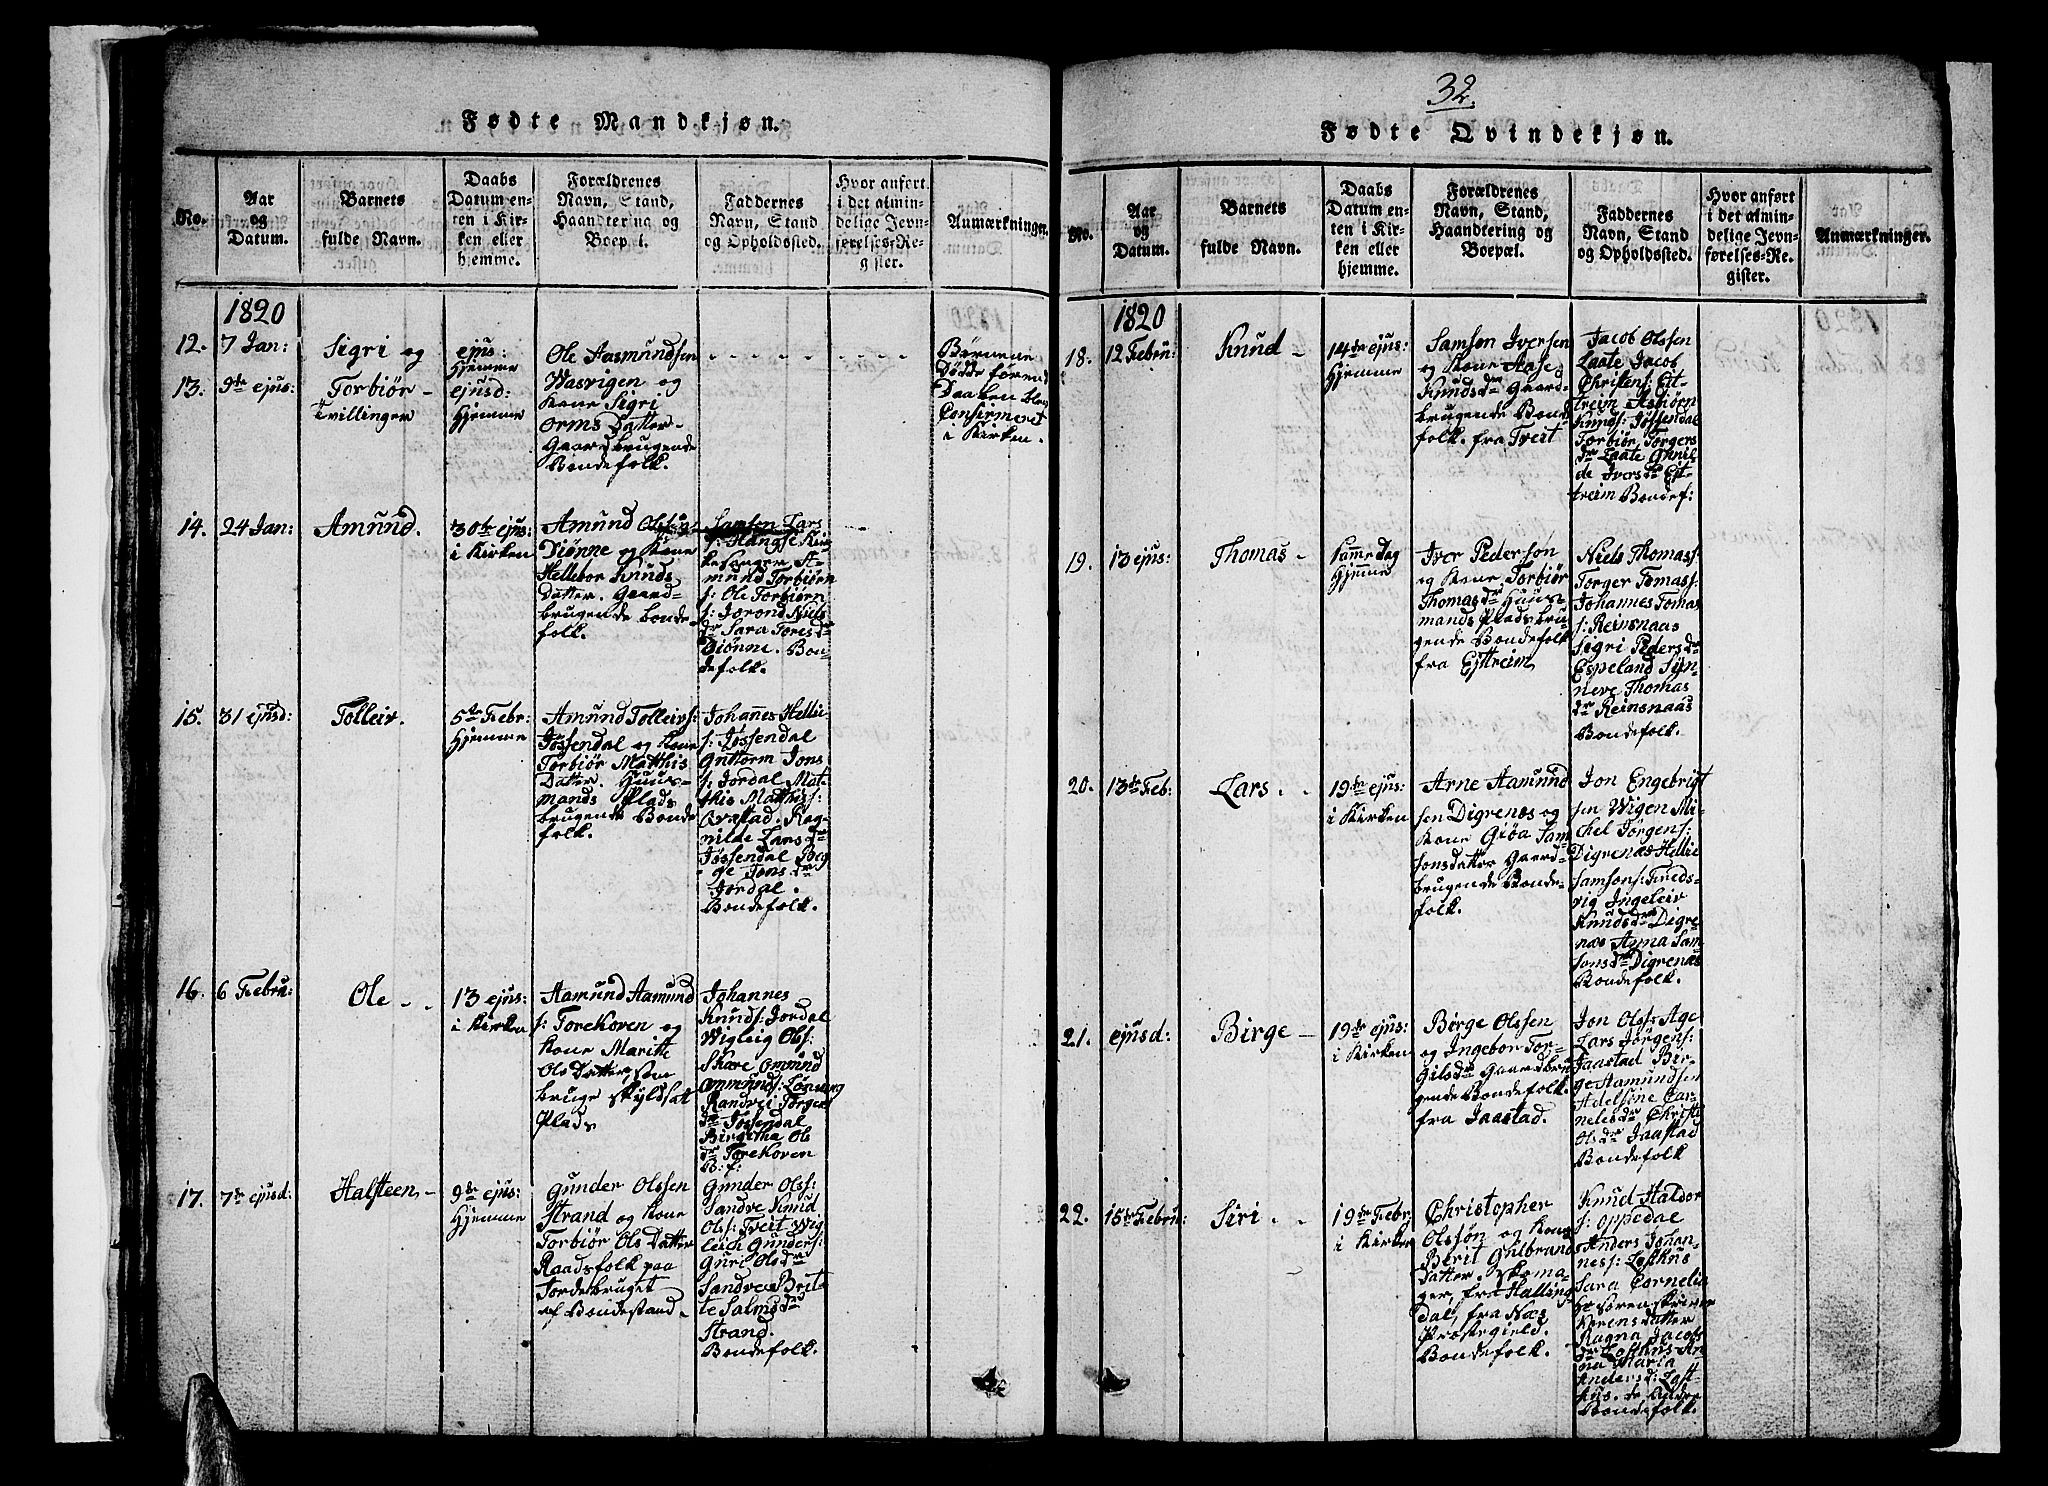 Fødte Mandkjøn.
No.
Aar
og
Datum.
Barnets
fulde Navn.
Daabs
Datum en-
ten i Kir-
ken eller
hjemme.
Forældrenes
Navn, Stand,
Haandtering og
Boepæl.
Faddernes
Navn, Stand
og Opholdssted.
Hvor anført
i det almin-
delige Jevn-
førelses-Re-
gister.
Anmærkninger.
1820
12.
7 Jan:
Sigri og
ejus:
Hjemme
13.
9de ejus:
Torbiør
Tvillinger
ejusd:
Hjemme
Ole Aasmundsen
og
Kone Sigri
Orms Datter
Gaardbrugende
Bondefolk.
Børnene
Døde førend
Daaben blev
Confirmeret
i Kirken.
14.
24 Jan:
Amund.
30te ejus:
i Kirken
Amund Olssen
Diønne og Kone
Hellebor Knuds
Datter. Gaard-
brugende bonde-
folk.
Samson Lars
s:
mund Torbiørn
s: Ole Torbiørn
s: Jorond Niels
dr Sara Toresdr
Diønne. Bon-
defolk.
15.
31 ejusd:
Tolleiv.
5te Febr:
Hjemme
Amund Tolleivs:
Jøssendal og Kone
Torbiør Matthis
Datter. Huus-
mands Plads
brugende Bonde
folk.
Johannes Hellie
s: Jøssendal
Guttorm Jons
s: Jordal Mat-
this Matthiss:
Qvastad. Rag-
nilde Larsdr
Jøssendal
Jonsdr
Jordal.
Bondefolk.
16.
6 Febru:
Ole
13 ejus:
i Kirken
Aamund Aamund
s: Torekoven og
Kone Maritte
Ols Datter, som
bruge skyldsat
Plads
Johannes
Knuds: Jordal
Wigleig Ols:
Skare Ommund
Ommunds:
Randvei Torgers
dr Jøssendal
Birgitha Ols
dr Torekoven
B: f:
17.
7de ejusd:
Halsteen
9de ejus:
Hjemme
Gunder Olssen
Strand og Kone
Torbiør Ols Datter
Raadsfolk paa
Jordebruget
af Bondestand
Gunder Olss:
Sandve Knud
Olss: Tveit Wig
leich Gunders:
Guri Olsdr
Sandve Brit
te Salmsdr
Strand.
Bondefolk.
32.
Fødte Qvindekjøn.
No.
Aar
og
Datum.
Barnets
fulde Navn.
Daabs
Datum en-
ten i Kir-
ken eller
hjemme.
Forældrenes
Navn, Stand,
Haandtering og
Boepæl.
Faddernes
Navn, Stand
og Opholdssted.
Hvor anført
i det almin-
delige Jevn-
førelses-Re-
gister.
Anmærkninger.
1820
18.
12 Febru:
Knud
14de ejus:
Hjemme
Samson Iversen
og Kone Aase
Knudsdr Gaard-
brugende Bonde
folk. fra Tveit
Jacob Olssen
Laate Jacob
Christens: Eit-
treim Asbiøen
Knuds: Jøssendal
Torbiør Torgers
dr Laate Gunil
de Iversdr Eit-
treim Bondef:
19.
13 ejus:
Thomas
samme Dag
Hjemme
Iver Pederson
og Kone Torbiør
Thomasdr Huus-
mands Pladsbru-
gende Bondefolk
fra Eittreim
Niels Thomass:
Torger Tomass:
Johannes Tomas
s: Reinsnaas
Sigri Pedersdr
Espeland Syn-
neve Thomas
dr Reinsnaas
Bondefolk.
20.
13de Feb:
Lars.
19de ejus:
i Kirken
Arne Aamund
sen Digrenæs og
Kone Giøa Sam
sonsdatter Gaard-
brugende Bonde-
folk.
Jon Engebrigt
sen Wigen Mi-
chel Jørgens:
Digrenæs Hellie
Samsons: Freds-
vig Ingeleiv
Knudsdr Digre
næs Agma Sam-
sonsdr Digrenæs
Bondefolk.
21.
ejusd:
Birge
19de ejus:
i Kirken
Birge Olssen
og Ingebor Tor-
gilsdr Gaardbru
gende Bondefolk.
fra Jaastad.
Jon Olss: Age
Lars Jørgens:
Jaastad Bir-
ge Aamundsen
Adelsine Cor-
nelesdr Christi
Olsdr Jaastad
Bondefolk
22.
15de Febru:
Siri.
19de Febr:
i Kirken
Christopher
Olssøn og Kone
Berit Gulbrands
Datter. Skoma-
ger, fra Halling
Dal, fra Næs
Præstegield.
Bondefolk.
Knud Haldor
s: Oppedal
Anders Johan-
nes: Lofthus
Sara Cornelia
Sorenskriver
Korensdatter
Ragna Jacobs
dr Lofthus An
na Maria
Andersd: Loft-
hus. de Andre
Bondefolk.